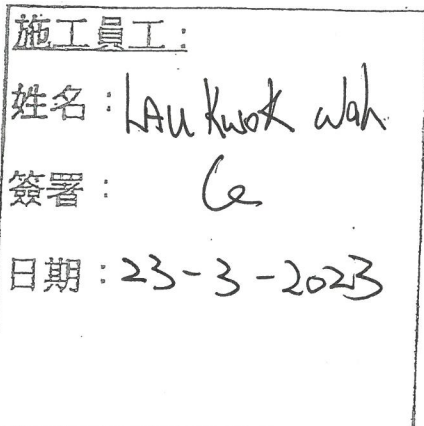 施工員工：
姓名：LAU Kwok Wah
簽署：
日期：23-3-2023